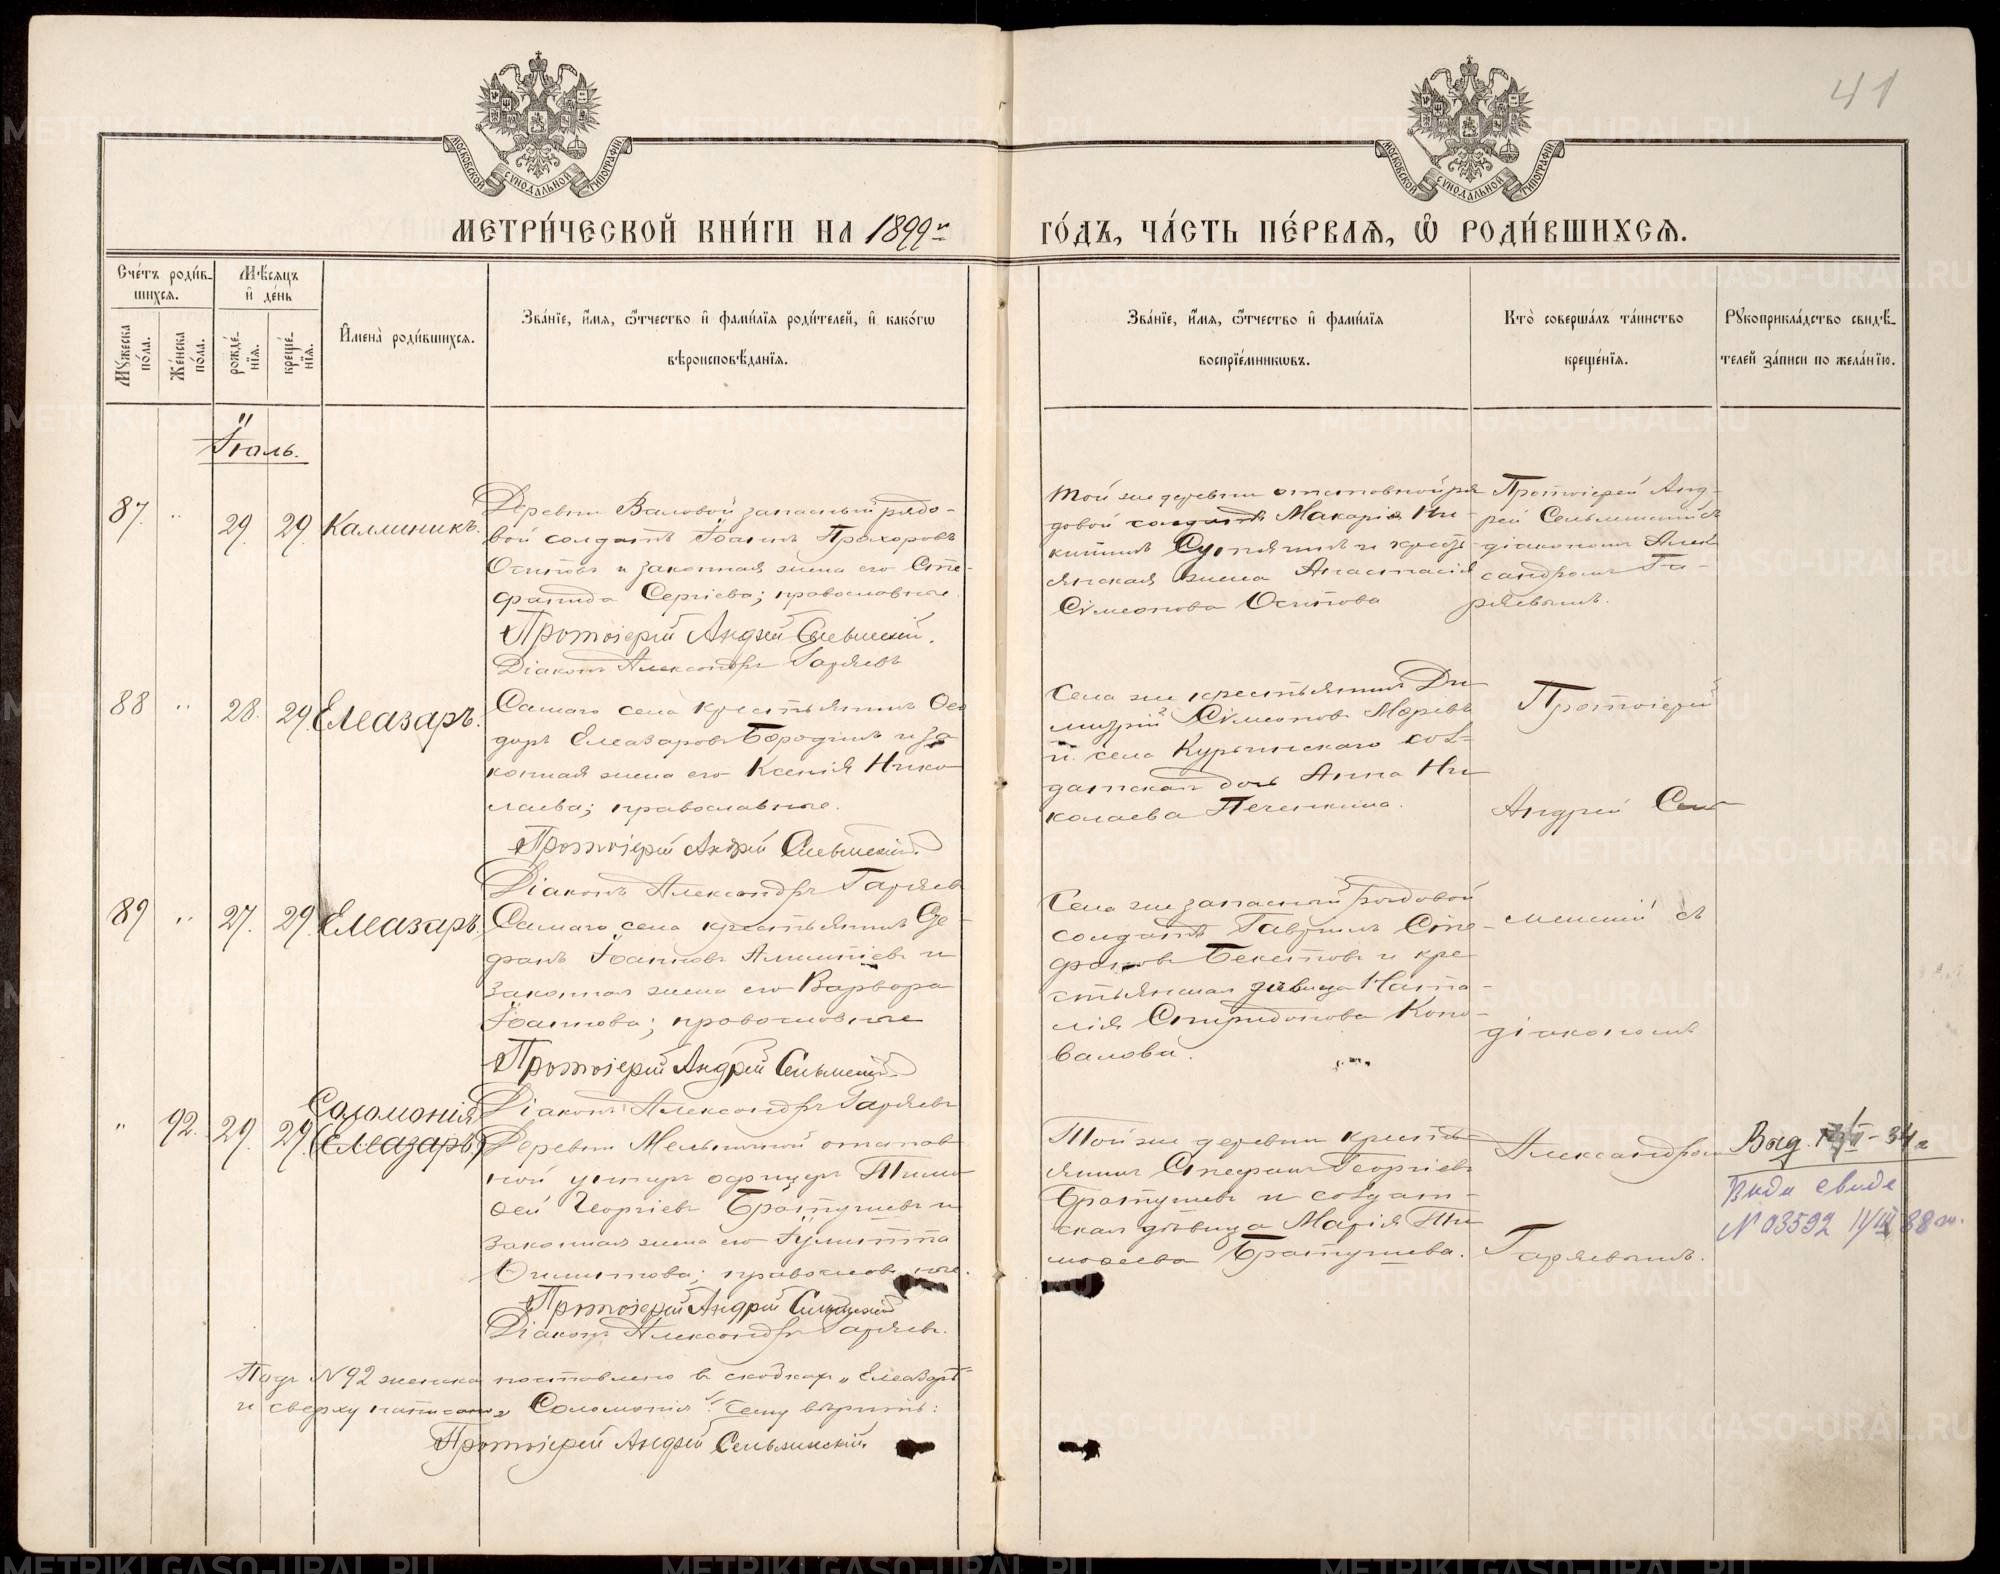 41
МОСКОВСКОЙ СѴНОДАЛЬНОЙ ТИПОГРАФІИ
МОСКОВСКОЙ СѴНОДАЛЬНОЙ ТИПОГРАФІИ
МЕТРИ́ЧЕСКОЙ КНИ́ГИ НА 1899й ГО́ДЪ, ЧА́СТЬ ПЕ́РВАѦ, Ѽ РОДИ́ВШИХСѦ.
Сче́тъ роди́в-
шихсѧ.
Мꙋ́жеска по́ла.
Же́нска по́ла.
Мѣ́сѧцъ
и҆ де́нь
рожде́нїѧ.
креще́нїѧ.
И҆мена̀ роди́вшихсѧ.
Зва́нїе, и҆́мѧ, ѻ҆́тчество и҆ фами́лїѧ роди́телей, и҆ како́гѡ
вѣроисповѣ́данїѧ.
Зва́нїе, и҆́мѧ, ѻ҆́тчество и҆ фами́лїѧ
воспрїе́мникѡвъ.
Кто̀ соверша́лъ та́инство
креще́нїѧ.
Рꙋкоприкла́дство свидѣ́-
телей за́писи по жела́нїю.
Іюль.
87. " 29. 29. Каллиникъ.
Деревни Валовой запасный рядо-
вой солдатъ Іоаннъ Прохоровъ
Осиповъ и законная жена его Сте-
фанида Сергіева; православные.
Протоіерей Андрей Сельменскій.
Діаконъ Александръ Гаряевъ
Той же деревни отставной ря
довой солдатъ Макарій Ни-
китинъ и кресть
янская жена Анастасія
Сімеонова Осипова
Протоіерей Анд-
рей Сельменскій съ
діакономъ Алек
сандромъ Га-
ряевымъ.
88 " 28. 29. Елеазаръ.
Самаго села крестьянинъ Ѳео
доръ Елеазаровъ Бородинъ и за
конная жена его Ксенія Нико
лаева; православные.
Протоіерей Андрей Сельменскій.
Діаконъ Александръ Гаряевъ
Села же крестьянинъ Ди
митрій Сімеоновъ
и села Курьинскаго сол-
датская дочь Анна Ни
колаева Печенкина.
Протоіерей
Андрей Сель
89 " 27. 29. Елеазаръ.
Самаго села крестьянинъ Сте-
фанъ Іоанновъ и
законная жена его Варвара
Іоаннова; православные
Протоіерей Андрей Сельменскій
Діаконъ Александръ Гаряевъ
Села же запасный рядовой
солдатъ Гавріилъ Сте-
фановъ Бекетовъ и кре
стьянская дѣвица Ната-
лія Спиридонова Коно-
валова.
менскій съ
діакономъ
" 92. 29. 29. Соломонія
(Елеазаръ)
Деревни Мельничной отстав
ной унтеръ офицеръ Тимо
ѳей Георгіевъ Братушевъ и
законная жена его Іулитта
православные.
Протоіерей Андрей Сельменскій
Діаконъ Александръ Гаряевъ.
Той же деревни кресть
янинъ Стефанъ Георгіевъ
Братушевъ и солдат-
ская дѣвица Марія Ти
моѳеева Братушева.
Александромъ
Гаряевымъ.
Выд. -34г
N 03592 11/III 88
Подъ №92 женска поставлено въ скобкахъ "Елеазаръ"
и сверху написано "Соломонія". Сему вѣрить:
Протоіерей Андрей Сельменскій.